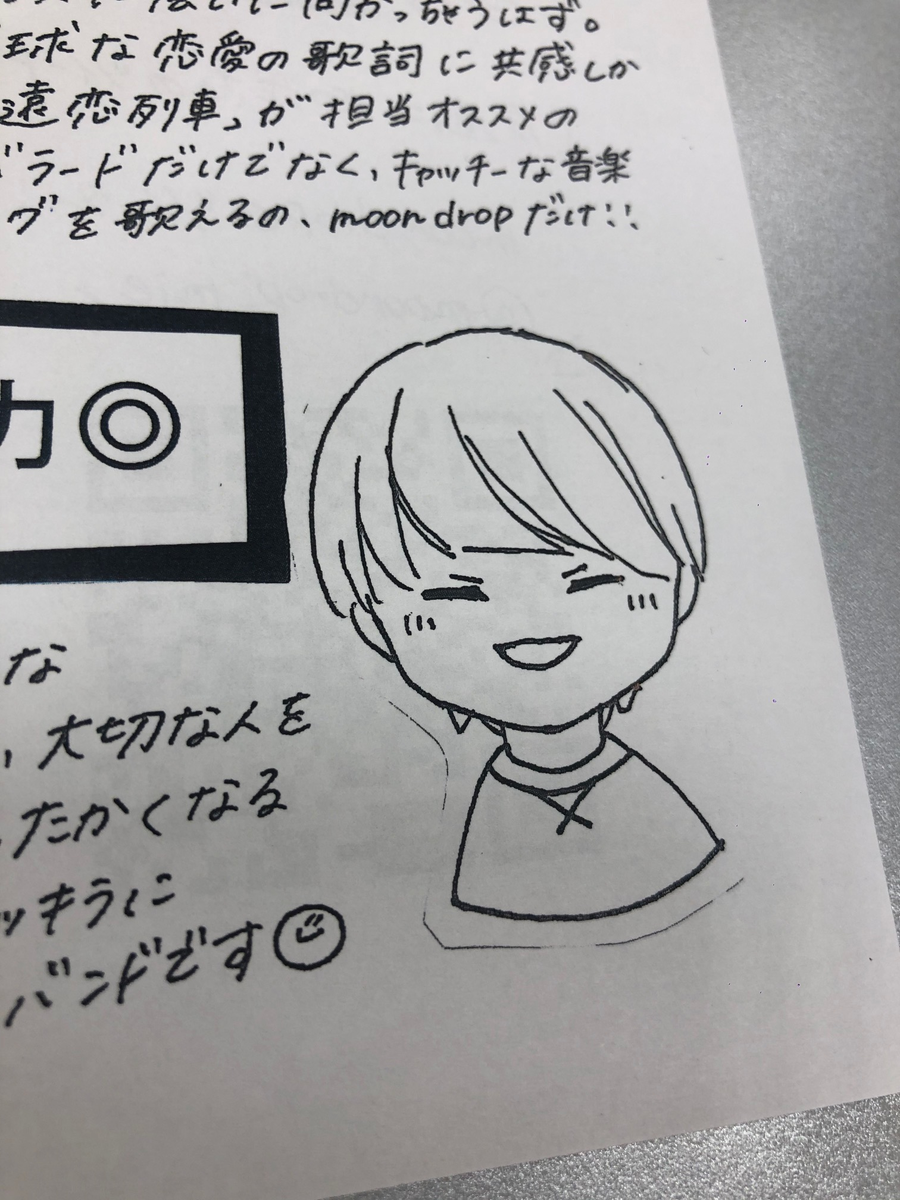 に向かっちゃうはず。
球な恋愛の歌詞に共感しか
遠恋列車」が担当オススメの
バラードだけでなく、キャッチーな音楽
グを歌えるの、moon dropだけ!!
力◎
な
、大切な人を
たかくなる
ッキラに
バンドです